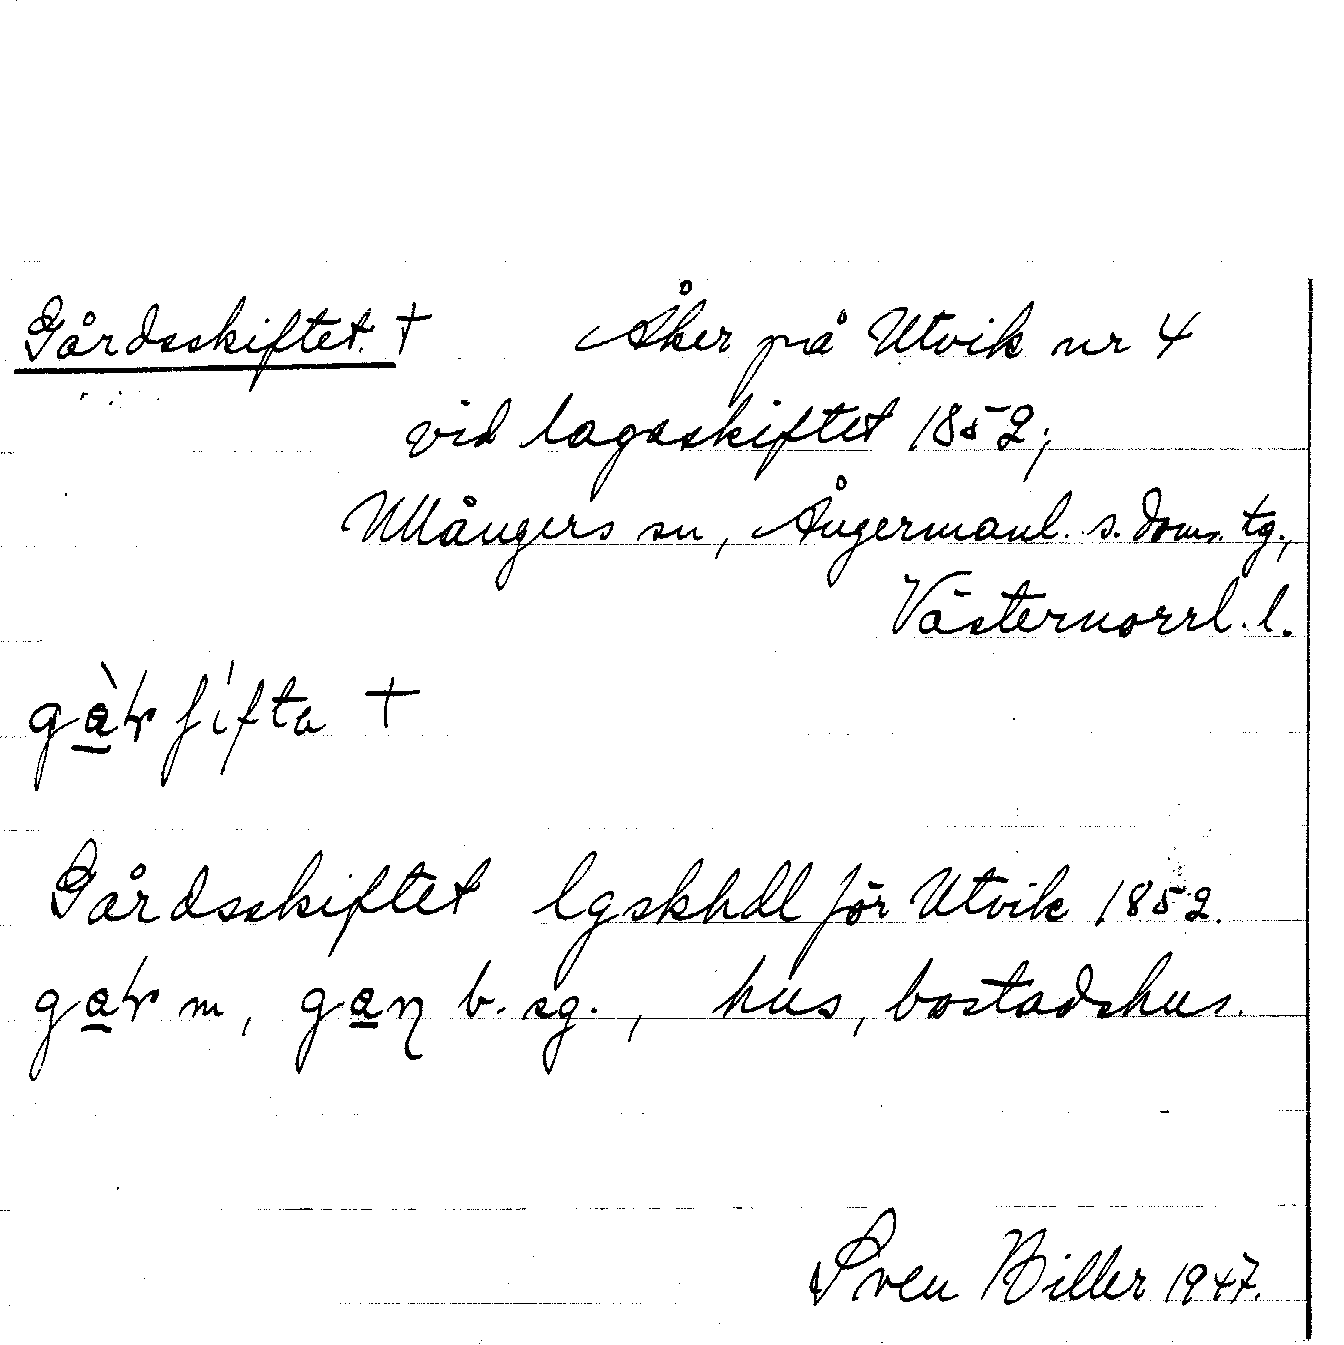 Gårdsskiftet. † Åker på Utvik nr 4
vid lagaskiftet 1852;
Ullångers sn, Ångermanl. s. doms. tg.,
Västernorrl. l.
†
Gårdsskiftet lgskhdl för Utvik 1852.
m, b. sg., hus, bostadshus.
Sven Biller 1947.